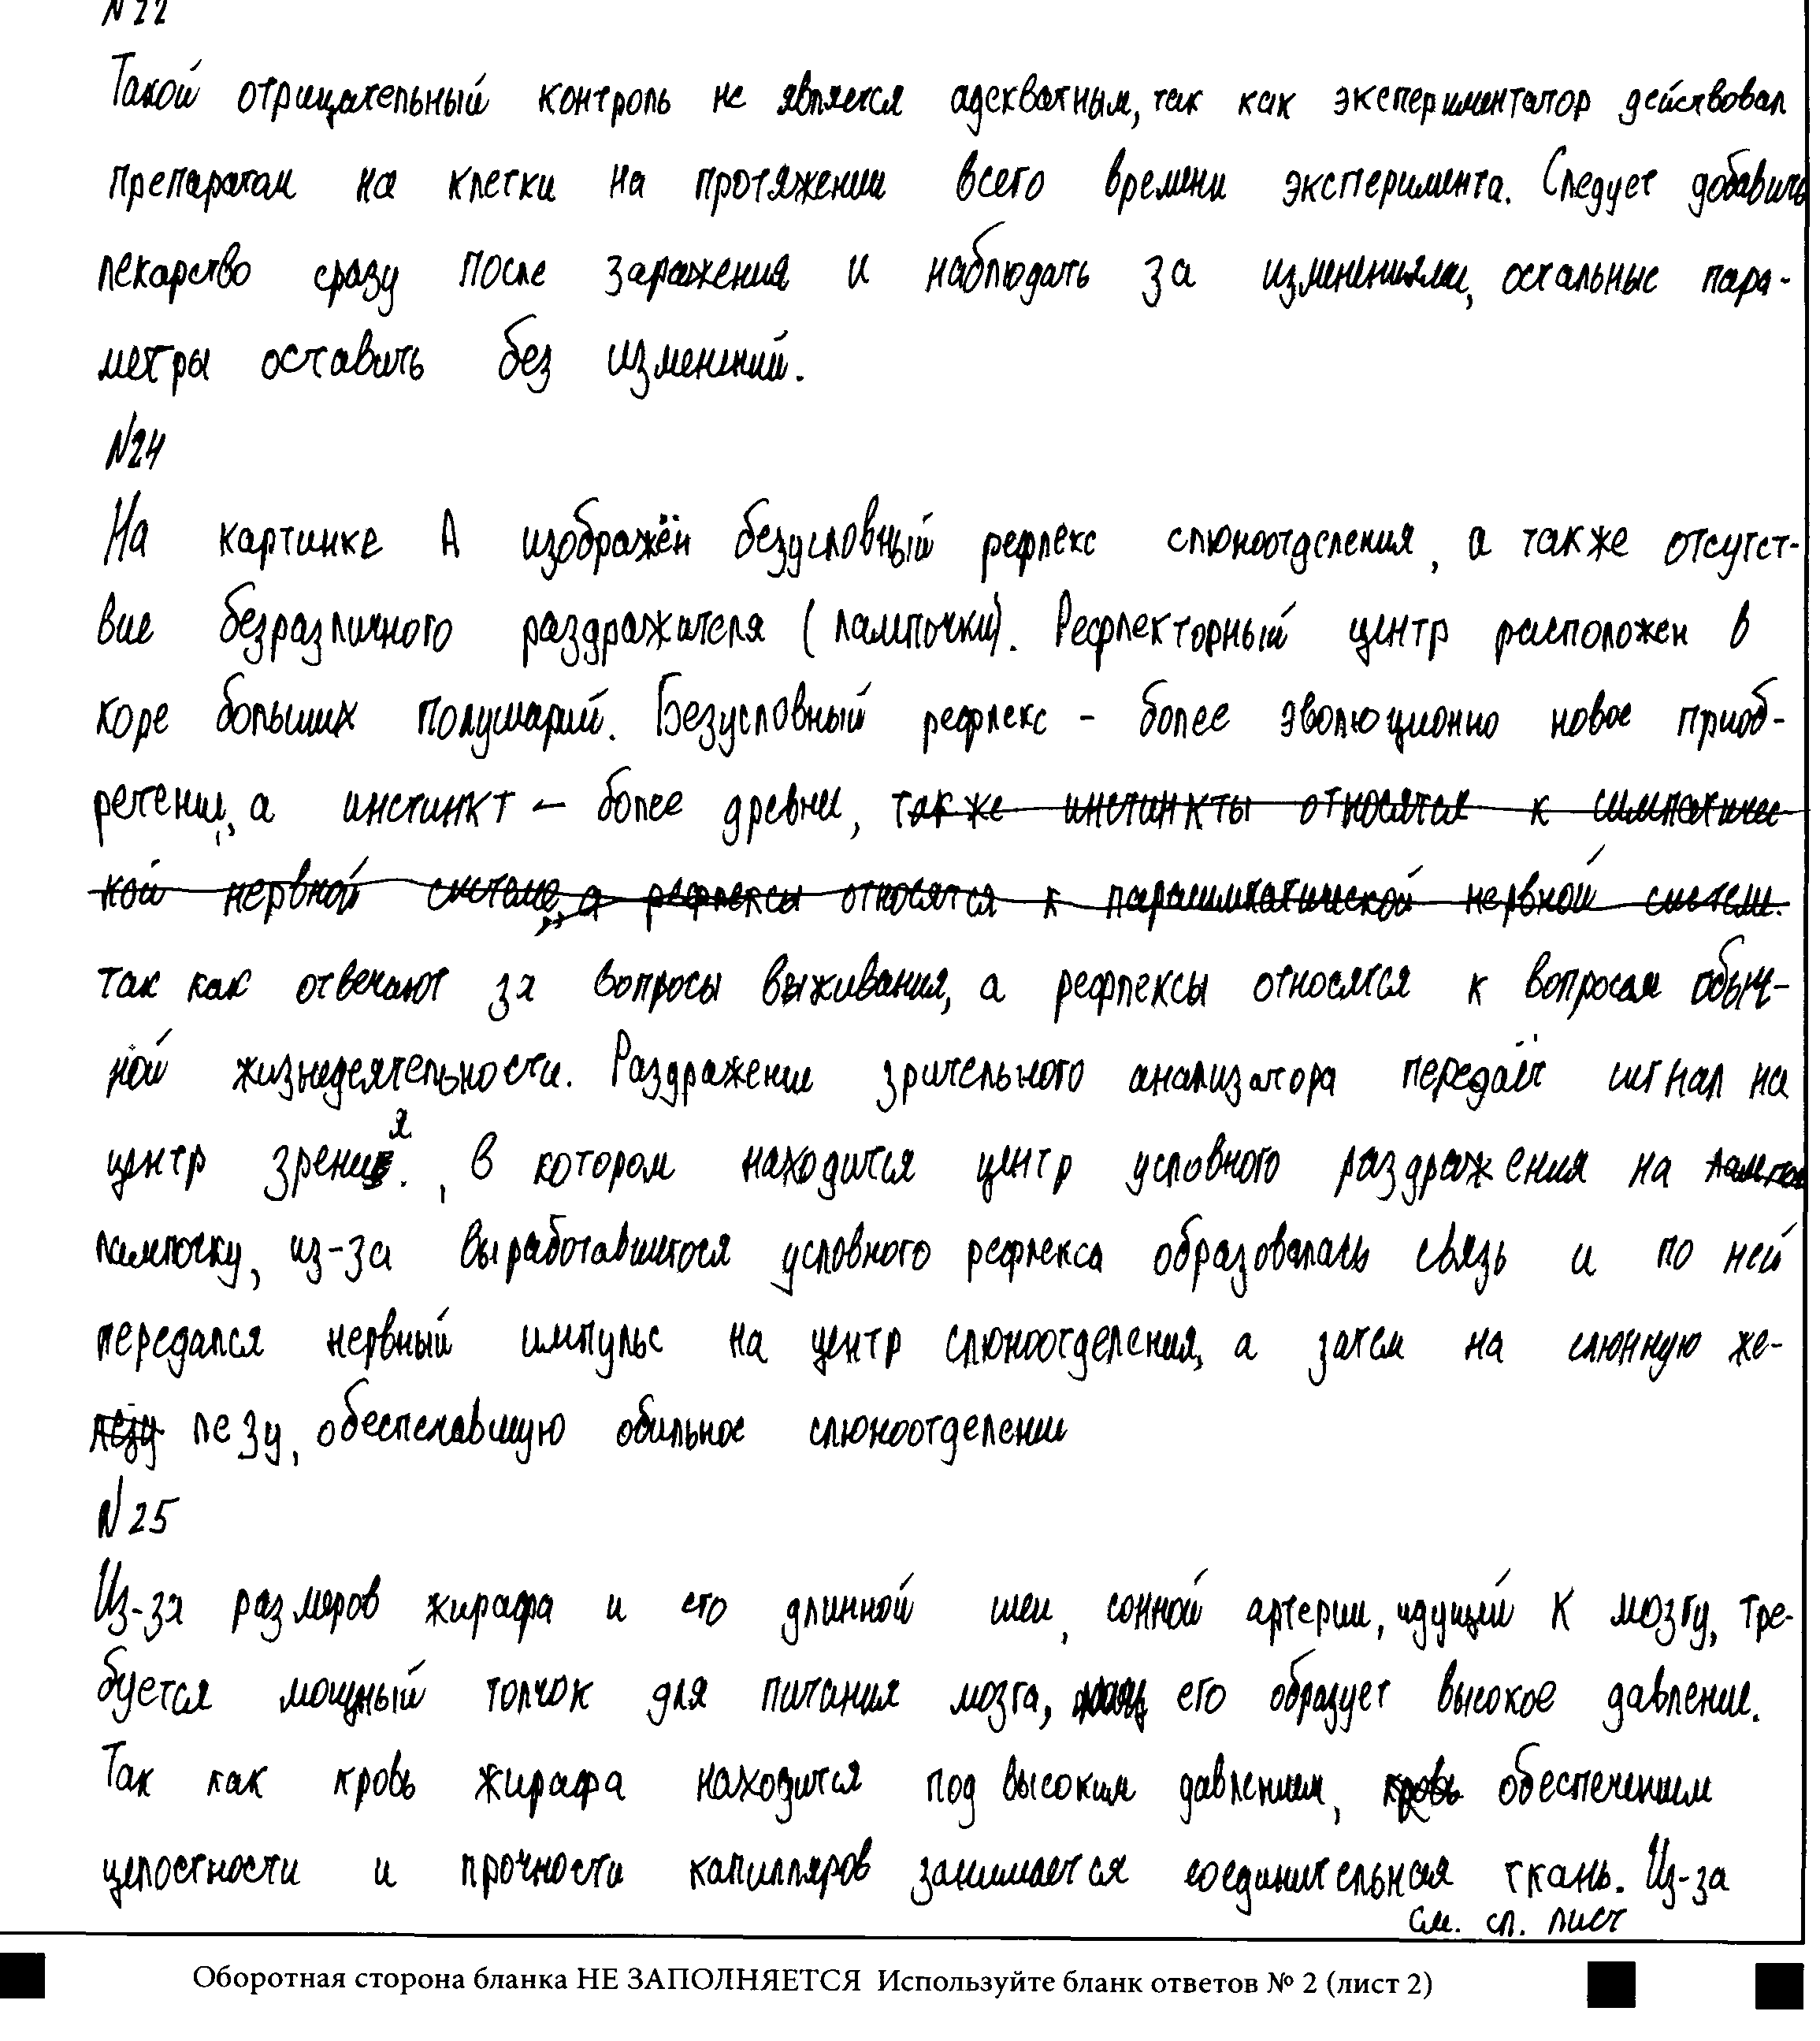 N22
Такой отрицательный контроль не является адекватным, так как экспериментатор действовал
препаратам на клетки на протяжении всего времени эксперимента. Следует добавить
лекарство сразу после заражения и наблюдать за изменениями, остальные пара-
метры оставить без изменений.
N24
На картинке А изображён безусловный рефлекс слюноотделения, а также отсутст-
вие безразличного раздражителя (лампочки). Рефлекторный центр расположен в
коре больших полушарий. Безусловный рефлекс - более эволюционно новое приоб-
ретении, а инстинкт - более древни, также инстинкты относятся к симпатичес
кой нервной системе, а рефлексы относятся к парасимпатической нервной систем.
так как отвечают за вопросы выживания, а рефлексы относятся к вопросам обыч-
ной жизнедеятельности. Раздражении зрительного анализатора передаёт сигнал на
центр зрения, в котором находится центр условного раздражения на
лампочку, из-за выработавшегося условного рефлекса образовалась связь и по ней
передался нервный импульс на центр слюноотделения, а затем на слюнную же-
лезу лезу, обеспечавшую обильное слюноотделении
N25
Из-за размеров жирафа и его длинной шеи, сонной артерии, идущий к мозгу, тре-
буется мощный толчок для питания мозга, его образует высокое давление.
Так как кровь жирафа находится под высоким давлением, кровь обеспечением
целостности и прочности капилляров занимается соединительная ткань. Из-за
см. сл. лист
Оборотная сторона бланка НЕ ЗАПОЛНЯЕТСЯ Используйте бланк ответов № 2 (лист 2)